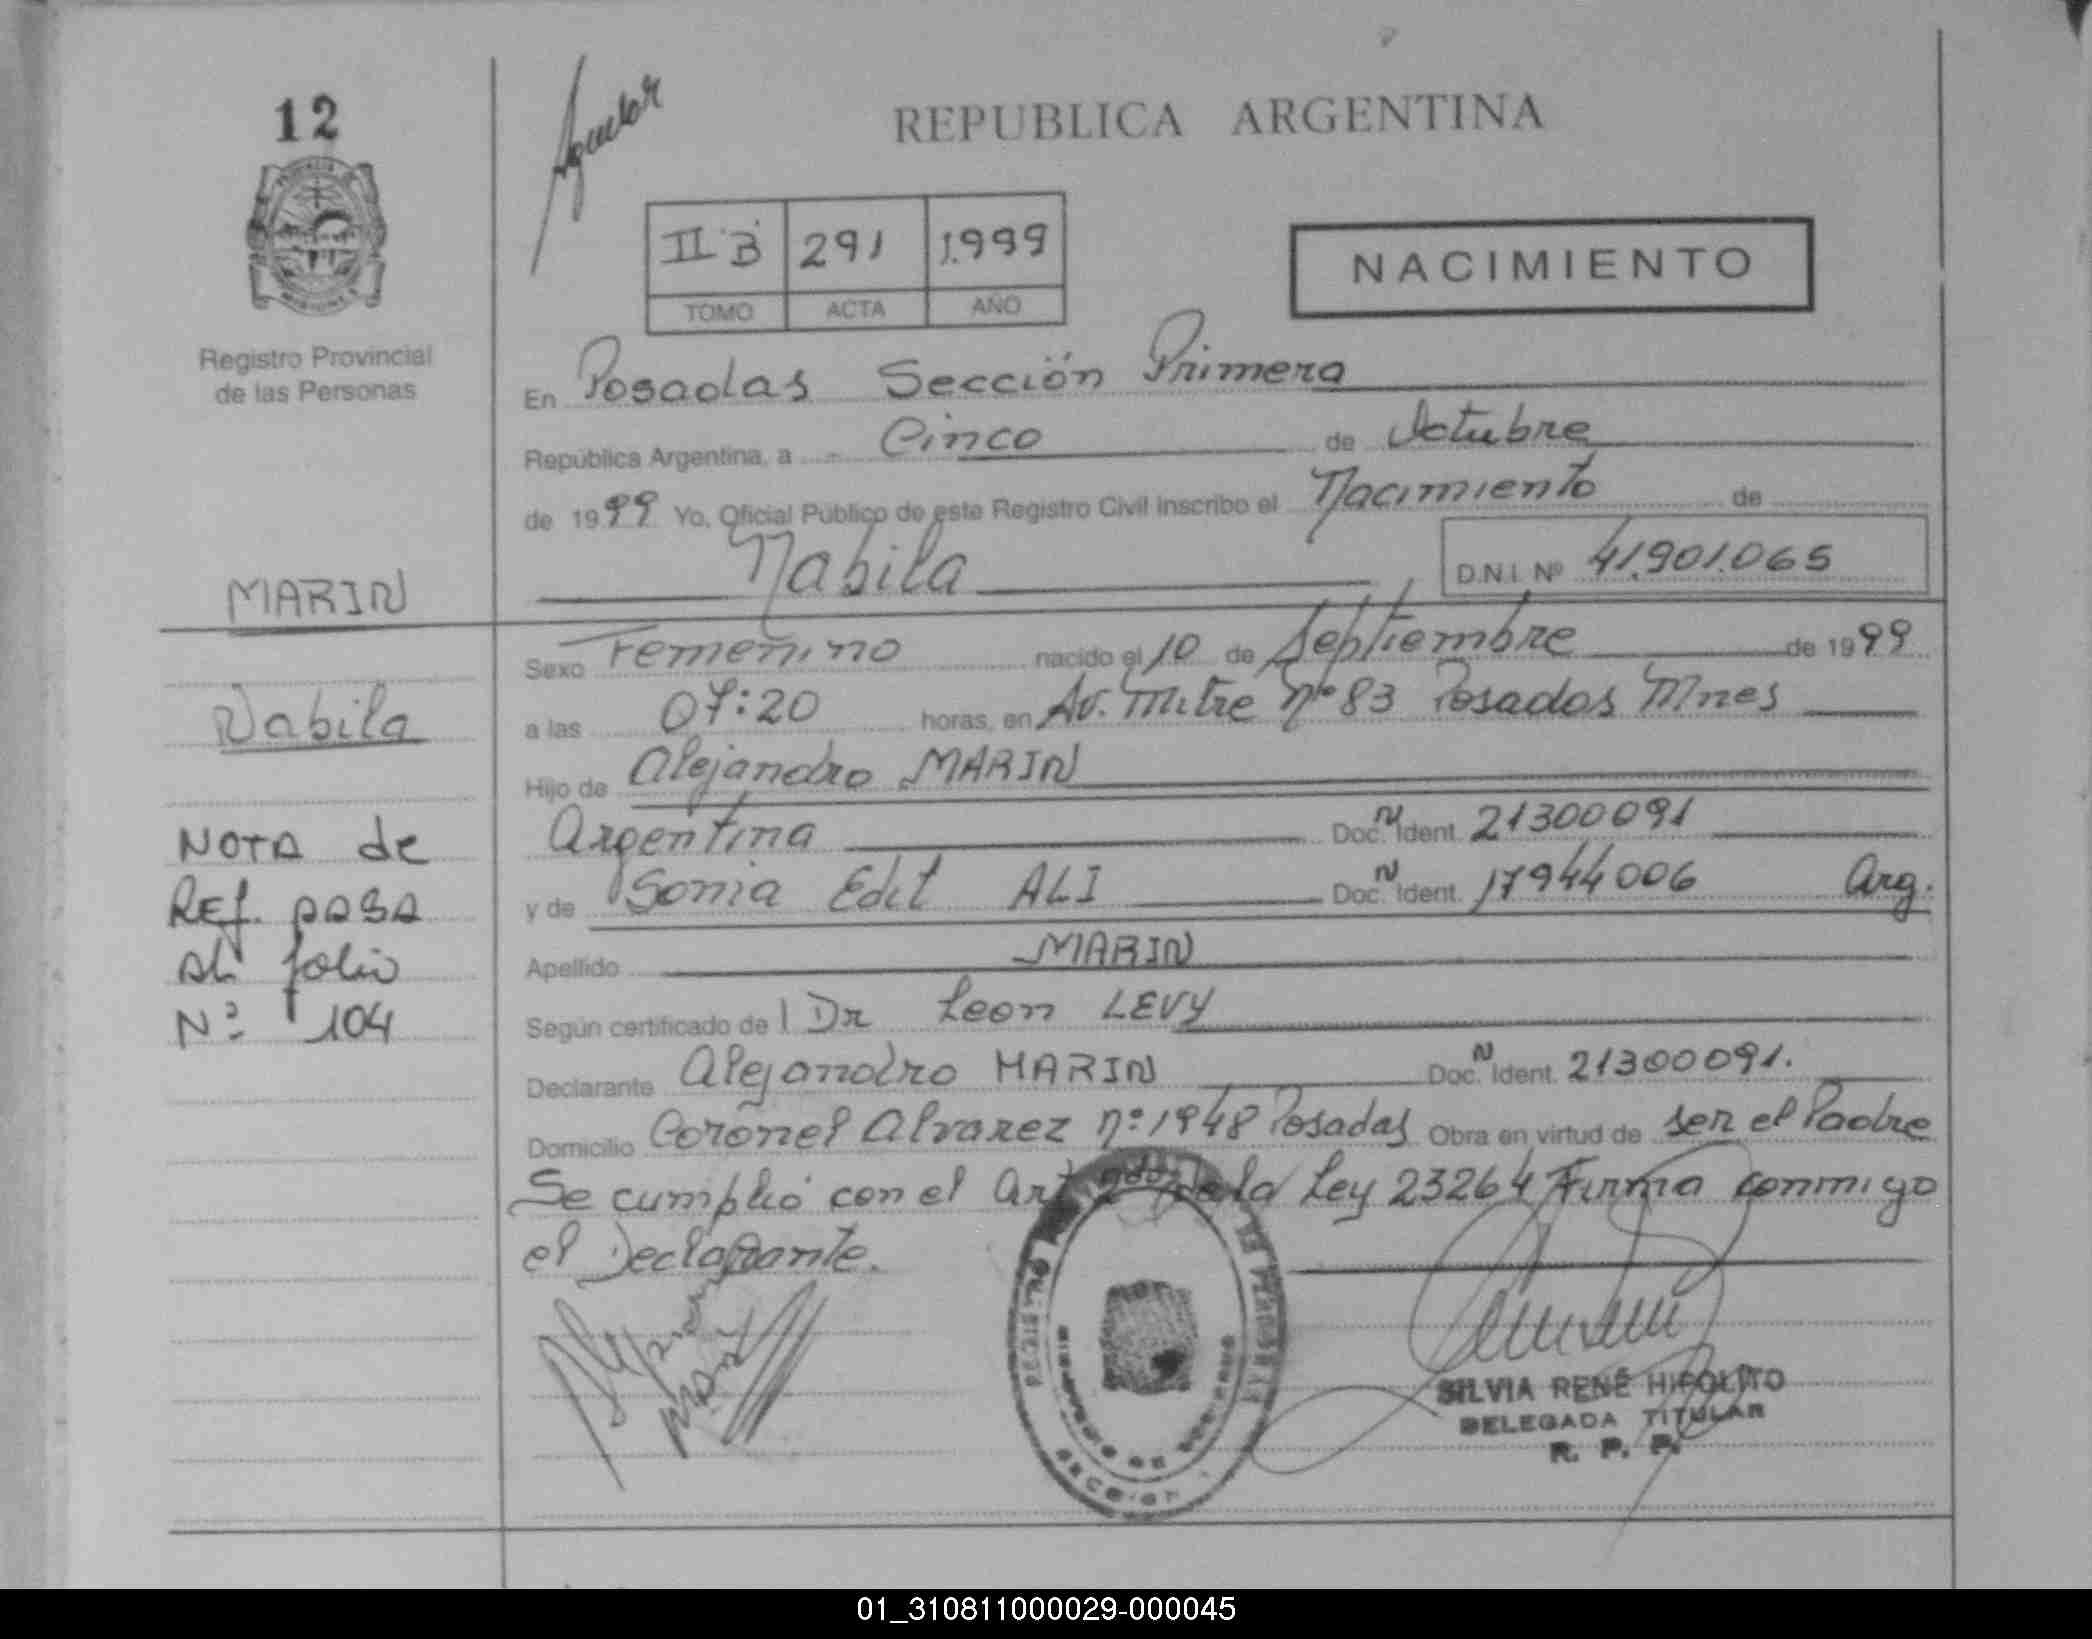 12
Aguilar
REPUBLICA ARGENTINA
II B 291 1.999
TOMO ACTA AÑO
NACIMIENTO
Registro Provincial
de las Personas
En Posadas Sección Primera
República Argentina, a Cinco de Octubre
de 1999 Yo, Oficial Público de este Registro Civil inscribo el Nacimiento de
Nabila
D.N.I. Nº 41.901.065
MARIN
Nabila
NOTA de
Ref. PASA
al folio
Nº 104
Sexo Femenino nacido el 10 de Septiembre de 1999
a las 07:20 horas, en Av. Mitre Nº 83 Posadas Mnes
Hijo de Alejandro MARIN
Argentina Doc. N Ident. 21300091
y de Sonia Edit ALI Doc. N Ident. 17944006 Arg.
Apellido MARIN
Según certificado de l Dr Leon LEVY
Declarante Alejandro MARIN Doc. N Ident. 21300091.
Domicilio Coronel Alvarez nº: 1948 Posadas Obra en virtud de ser el Padre
Se cumplió con el Art de la Ley 23264 Firma conmigo
el Declarante.
SILVIA RENÉ HIPOLITO
DELEGADA TITULAR
R. P. P.
01_310811000029-000045